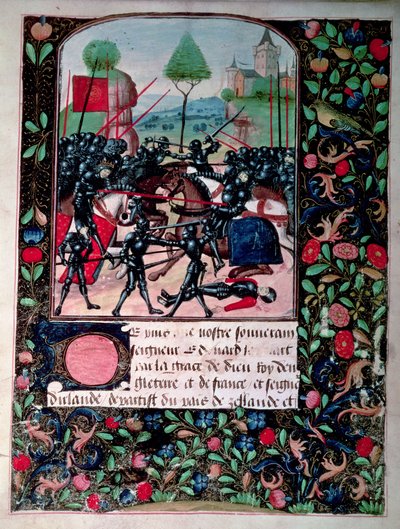 DE puis que nostre souverain
seigneur Edouard quart
par la grace de dieu roy den
gleterre et de france et seigne
dirlande departist du pais de zellande et